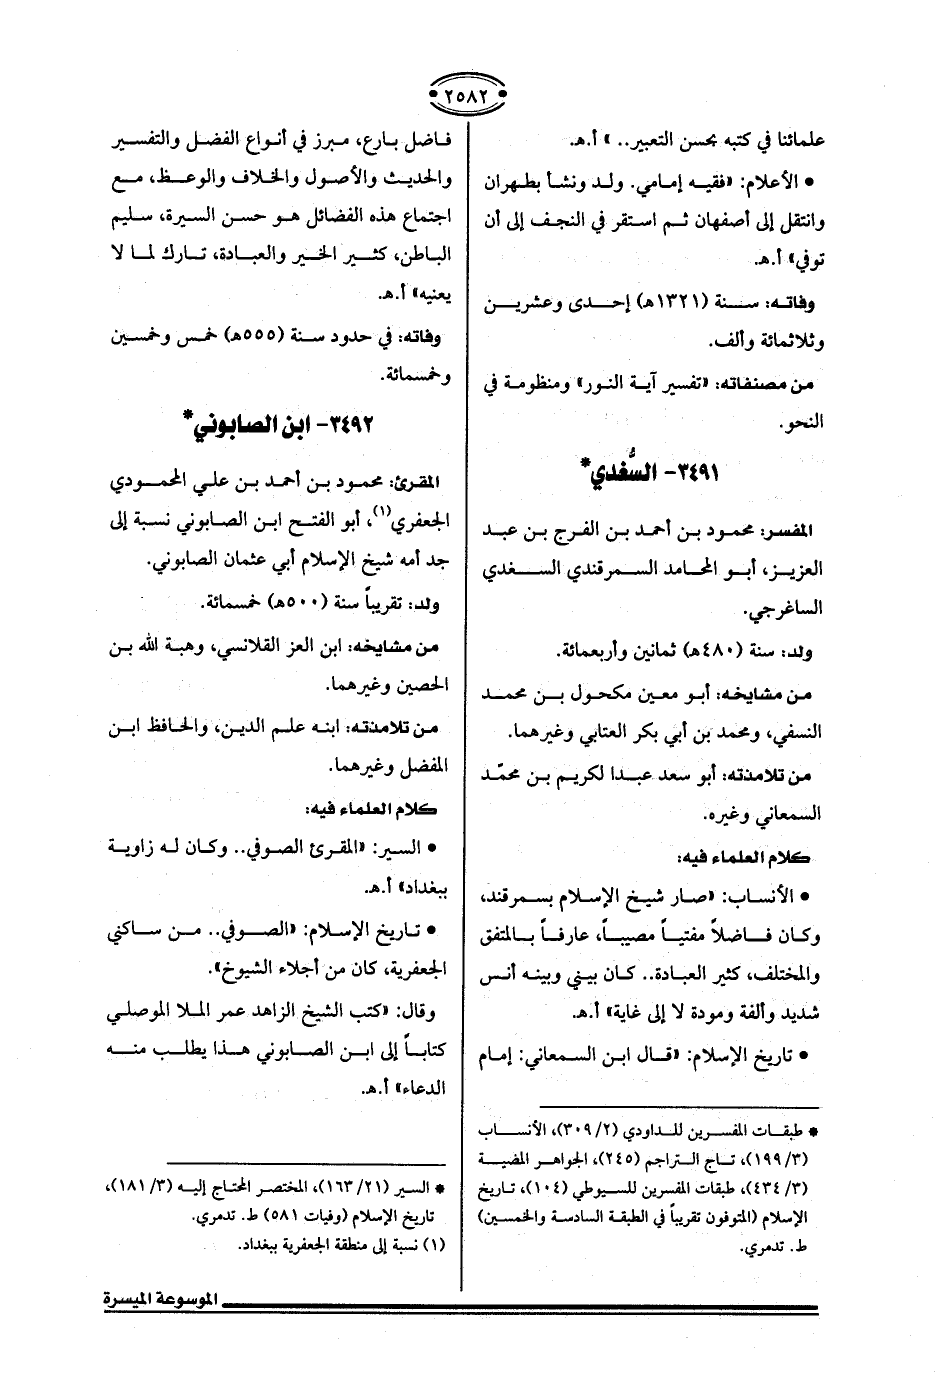 ٢٥٨٢
علمائنا في كتبه بحسن التعبير.. » أ.هـ.
• الأعلام: «فقيه إمامي. ولد ونشأ بطهران
وانتقل إلى أصفهان ثم استقر في النجف إلى أن
توفي» أ.هـ.
وفاته: سنة (١٣٢١هـ) إحدى وعشرين
وثلاثمائة وألف.
من مصنفاته: «تفسير آية النور» ومنظومة في
النحو.
٣٤٩١- السُّغدي*
المفسر: محمود بن أحمد بن الفرج بن عبد
العزيز، أبو المحامد السمرقندي السغدي
الساغرجي.
ولد: سنة (٤٨٠هـ) ثمانين وأربعمائة.
من مشايخه: أبو معين مكحول بن محمد
النسفي، ومحمد بن أبي بكر العتابي وغيرهما.
من تلامذته: أبو سعد عبدا لكريم بن محمّد
السمعاني وغيره.
كلام العلماء فيه:
• الأنساب: «صار شيخ الإسلام بسمرقند،
وكان فاضلاً مفتياً مصيباً، عارفاً بالمتفق
والمختلف، كثير العبادة.. كان بيني وبينه أنس
شديد وألفة ومودة لا إلى غاية» أ.هـ.
• تاريخ الإسلام: «قال ابن السمعاني: إمام
* طبقات المفسرين للداودي (٢/ ٣٠٩)، الأنساب
(٣/ ١٩٩)، تاج التراجم (٢٤٥)، الجواهر المضية
(٣/ ٤٣٤)، طبقات المفسرين للسيوطي (١٠٤)، تاريخ
الإسلام (المتوفون تقريباً في الطبقة السادسة والخمسين)
ط. تدمري.
فاضل بارع، مبرز في أنواع الفضل والتفسير
والحديث والأصول والخلاف والوعظ، مع
اجتماع هذه الفضائل هو حسن السيرة، سليم
الباطن، كثير الخير والعبادة، تارك لما لا
يعنيه» أ.هـ.
وفاته: في حدود سنة (٥٥٥هـ) خمس وخمسين
وخمسمائة.
٣٤٩٢- ابن الصابوني*
المقرئ: محمود بن أحمد بن علي المحمودي
الجعفري(١)، أبو الفتح ابن الصابوني نسبة إلى
جد أمه شيخ الإسلام أبي عثمان الصابوني.
ولد: تقريباً سنة (٥٠٠هـ) خمسمائة.
من مشايخه: ابن العز القلانسي، وهبة الله بن
الحصين وغيرهما.
من تلامذته: ابنه علم الدين، والحافظ ابن
المفضل وغيرهما.
كلام العلماء فيه:
• السير: «المقرئ الصوفي.. وكان له زاوية
ببغداد» أ.هـ.
• تاريخ الإسلام: «الصوفي.. من ساكني
الجعفرية، كان من أجلاء الشيوخ».
وقال: «كتب الشيخ الزاهد عمر الملا الموصلي
كتاباً إلى ابن الصابوني هذا يطلب منه
الدعاء» أ.هـ.
* السير (٢١/ ١٦٣)، المختصر المحتاج إليه (٣/ ١٨١)،
تاريخ الإسلام (وفيات ٥٨١) ط. تدمري.
(١) نسبة إلى منطقة الجعفرية ببغداد.
الموسوعة الميسرة